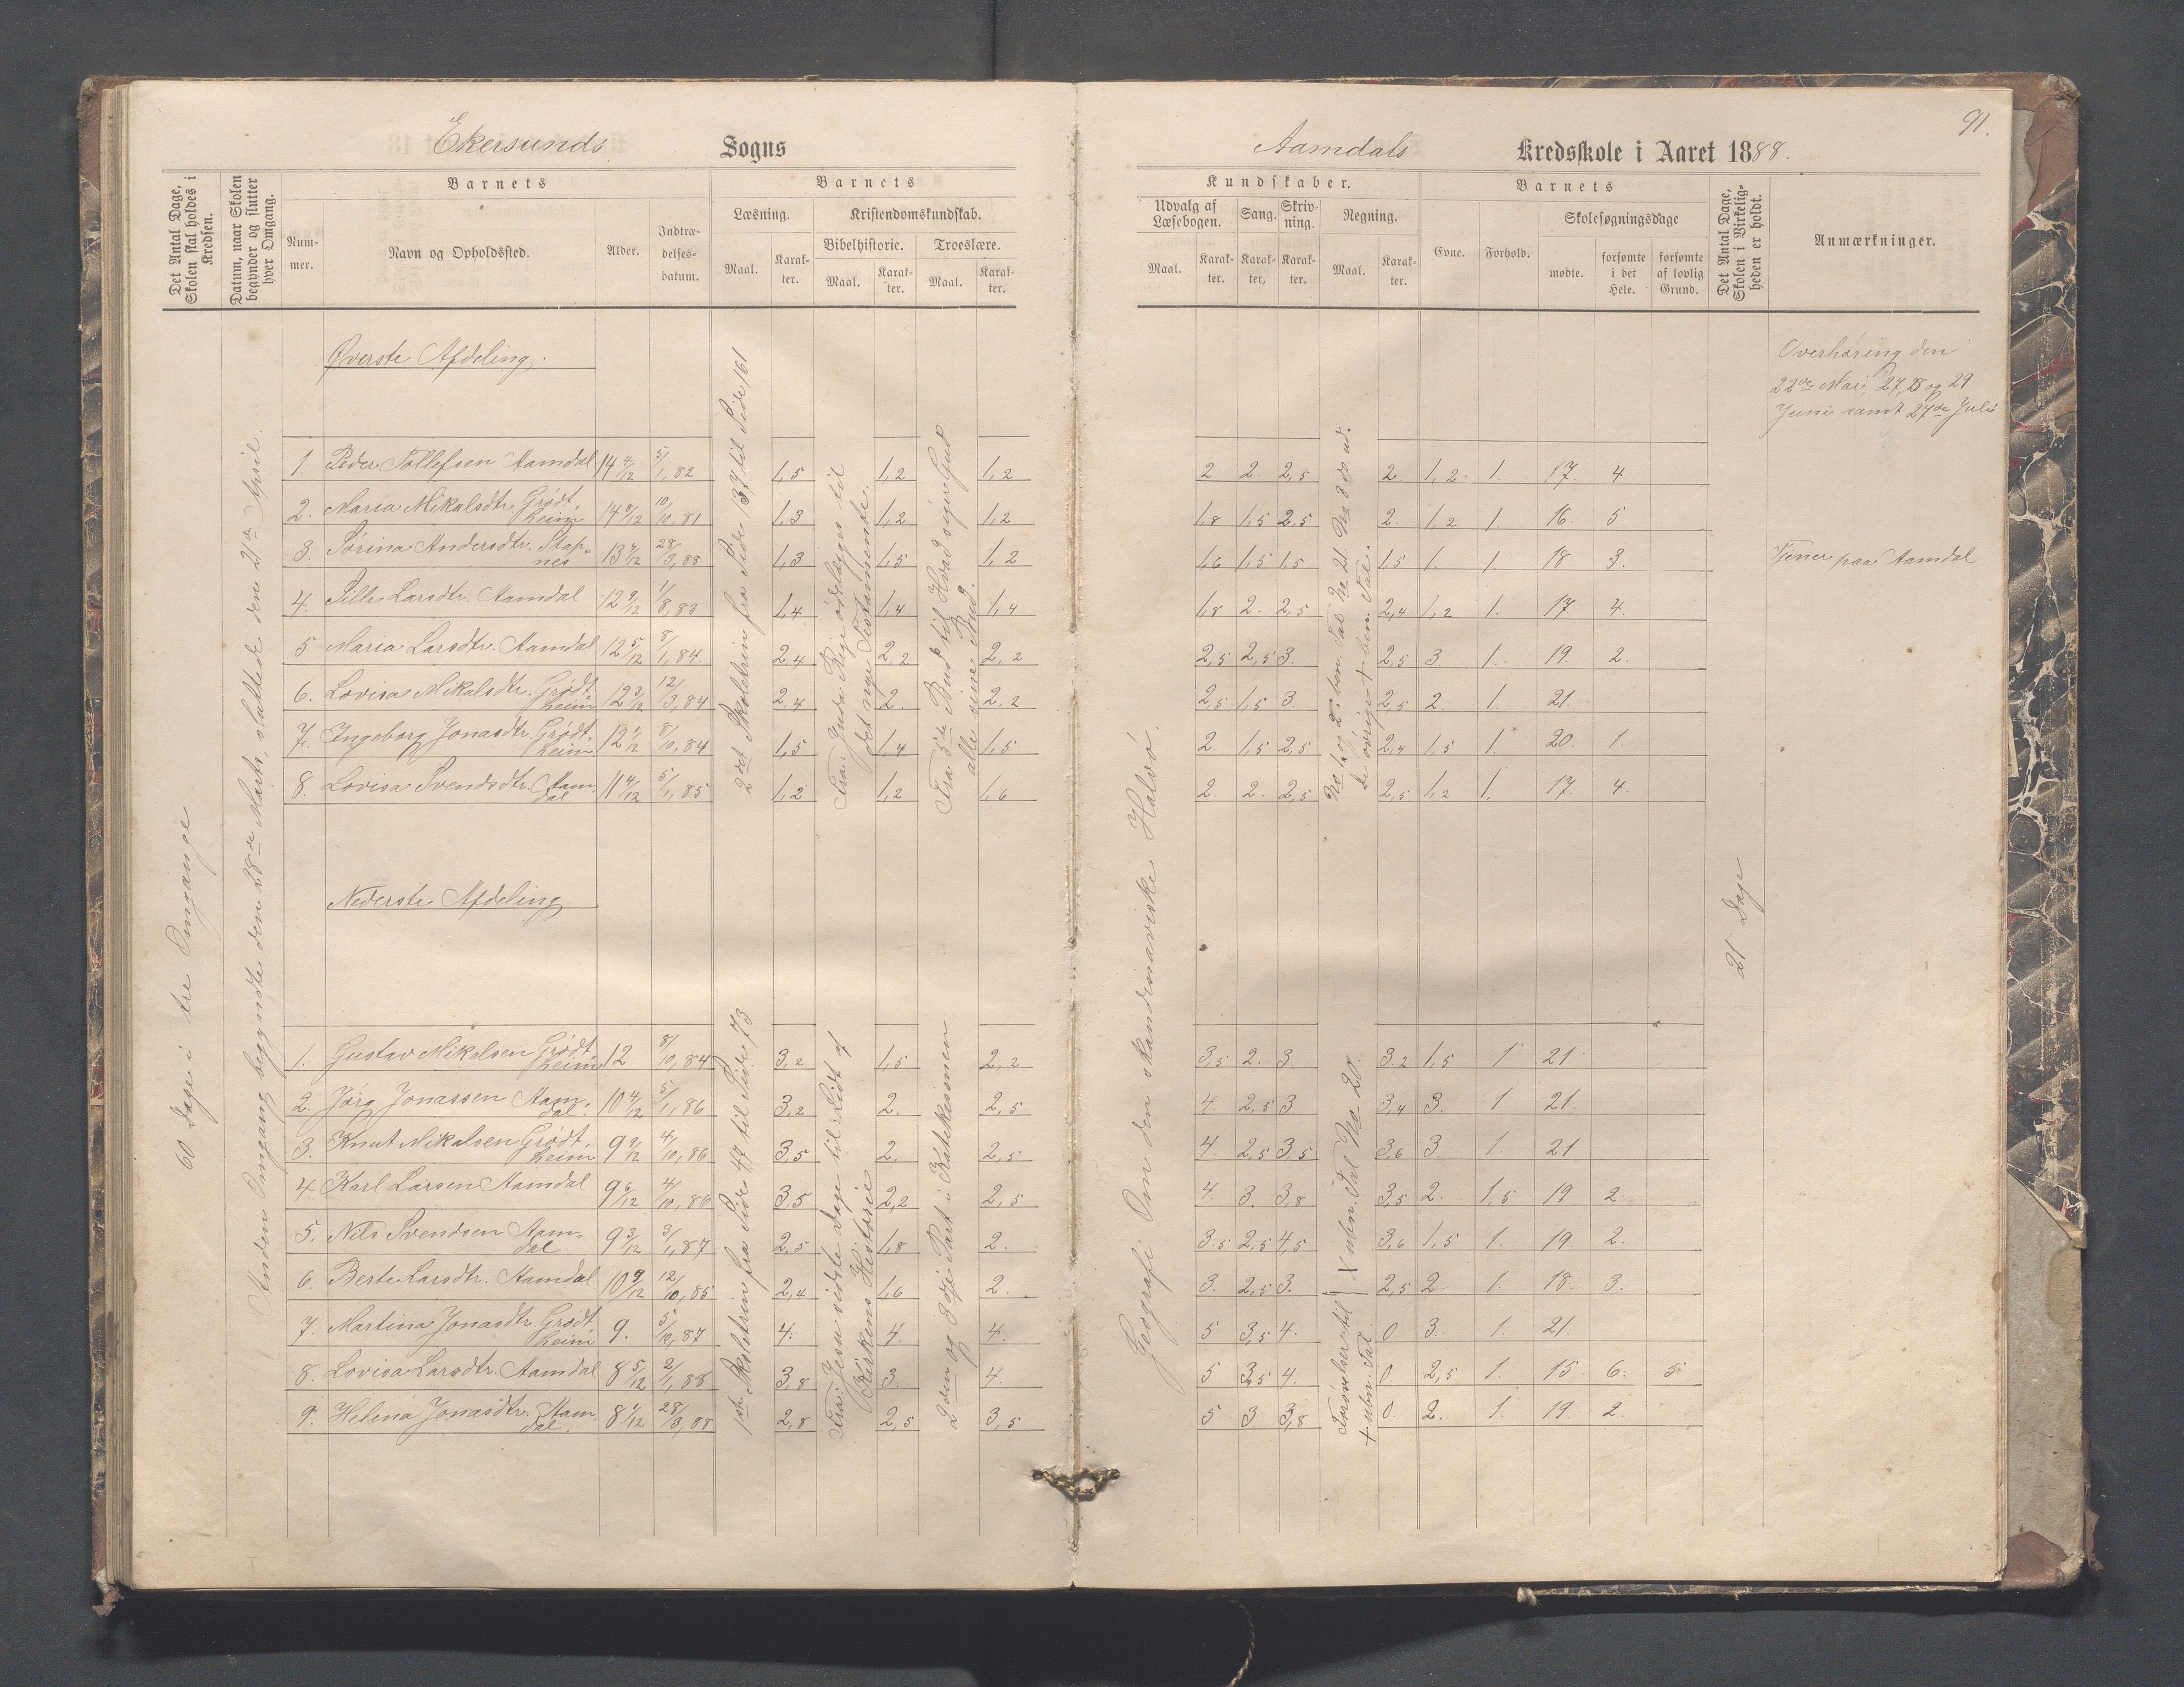 Ekersunds Sogns
Aamdals Kredsskole i Aaret 1888.
91.
Det Antal Dage, Skolen skal holdes i Kredsen.
Datum, naar Skolen begynder og slutter hver Omgang.
Barnets
Num-mer.
Navn og Opholdssted.
Alder.
Indtræ-delses-datum.
Barnets
Læsning.
Maal.
Karak-ter.
Kristendomskundskab.
Bibelhistorie.
Maal.
Karak-ter.
Troeslære.
Maal.
Karak-ter.
Kundskaber.
Udvalg af Læsebogen.
Maal.
Karak-ter.
Sang.
Karak-ter,
Skriv-ning.
Karak-ter.
Regning.
Maal.
Karak-ter.
Barnets
Evne.
Forhold.
Skolesøgningsdage
mødte.
forsømte i det Hele.
forsømte af lovlig Grund.
Det Antal Dage, Skolen i Virkelig-heden er holdt.
Anmærkninger.
60 Dage i tre Omgange
Anden Omgang begyndte den 28de Marts, sluttede den 21de April.
Øverste Afdeling.
Overhøring den
22de Mai, 27, 28 og 29
Juni samt 27de Juli
2det Skoletrin fra Side 137 til Side 161
Fra: Juda Rige ødelægges til det nye Testamente.
Fra 5te Bud til Hvad siger Gud alle sine Bud.
1. Peder Tollefsen Aamdal 14 4/12 5/1, 82 1,5 1,2 1,2 2 2. 2,5 2. 1,2 1. 17. 4
2. Maria Mikalsdtr. Grødt-heim 14 8/12 10/10, 81 1,3 1,2 1,2 1,8 1,5 2,5 2. 1,2 1. 16. 5
3. Sørina Andersdtr. Stap-nes 13 7/12 28/3, 88 1,3 1,5 1,2 1,6 1,5 1,5 1,5 1. 1 18 3. Tjener paa Aamdal
4. Sille Larsdtr. Aamdal 12 9/12 1/8, 83 1,4 1,4 1,4 1,8 2. 2,5 2,4 1,2 1. 17 4.
5 Maria Larsdtr. Aamdal 12 5/12 8/1, 84. 2,4 2,2 2,2 2,5 2,5 3. 2,5 3. 1. 19. 2.
6. Lovisa Mikalsdtr. Grødt-heim 12 3/12 12/3, 84 2,4 2. 2,2 2,5 1,5 3. 2,5 2. 1. 21.
7. Ingeborg Jonasdtr. Grødt-heim 12 1/12 8/10, 84 1,5 1,4 1,5 2. 1,5 2,5 2,4 1,5 1. 20. 1.
8. Lovisa Svendsdtr. Aam-dal 11 4/12 5/1, 85 1,2 1,2 1,6 2. 2. 2,5 2,5 1,2 1. 17. 4.
De øvrige + ben. Tal.
Geografi Om den skandinaviske Halvø.
21 Dage
Nederste Afdeling
1st Skoletrin fra Side 47 til Side 73
Fra: Jesu sidste Dage til Lidt af Kirkens Historie
2den og 3die Part i Katekismen
1. Gustav Mikalsen Grødt-heim 12 8/10, 84 3,2 1,5 2,2 3,5 2. 3. 3.2 1,5 1 21
2. Jørg Jonassen Aam-dal. 10 4/12 5/1, 86 3,2 2. 2,5 4. 2,5 3 3,4 3. 1 21.
3. Knut Mikalsen Grødt-heim 9 9/12 4/10, 86 3,5 2. 2,5 4. 2,5 3,5 3,6 3. 1. 21
4 Karl Larsen Aamdal 9 6/12 4/10, 86 3,5 2,2 2,5 4. 3. 3,8 3,5 2. 1,5 19 2.
5. Nils Svendsen Aam-dal 9 3/12 3/1, 87 2,5 1,8 2. 3,5 2,5 4,5 3,6 1,5 1. 19. 2.
6. Berte Larsdtr. Aamdal 10 9/12 12/10, 85 2,4 1,6 2. 3. 2,5 3. 2,5 2. 1. 18. 3.
7. Martina Jonasdtr Grødt-heim 9. 5/10, 87 4. 4. 4. 5 3,5 4. 0 3. 1. 21.
8. Lovisa Larsdtr. Aamdal 8 5/12 2/1, 88 3,8 3. 4. 5 3,5 4. 0. 2,5 1. 15 6. 5
9. Helena Jonasdtr. Aam-dal. 8 1/12 28/3, 88 2,8 2,5 3,5 5 3. 3,8 0. 2. 1. 19. 2.